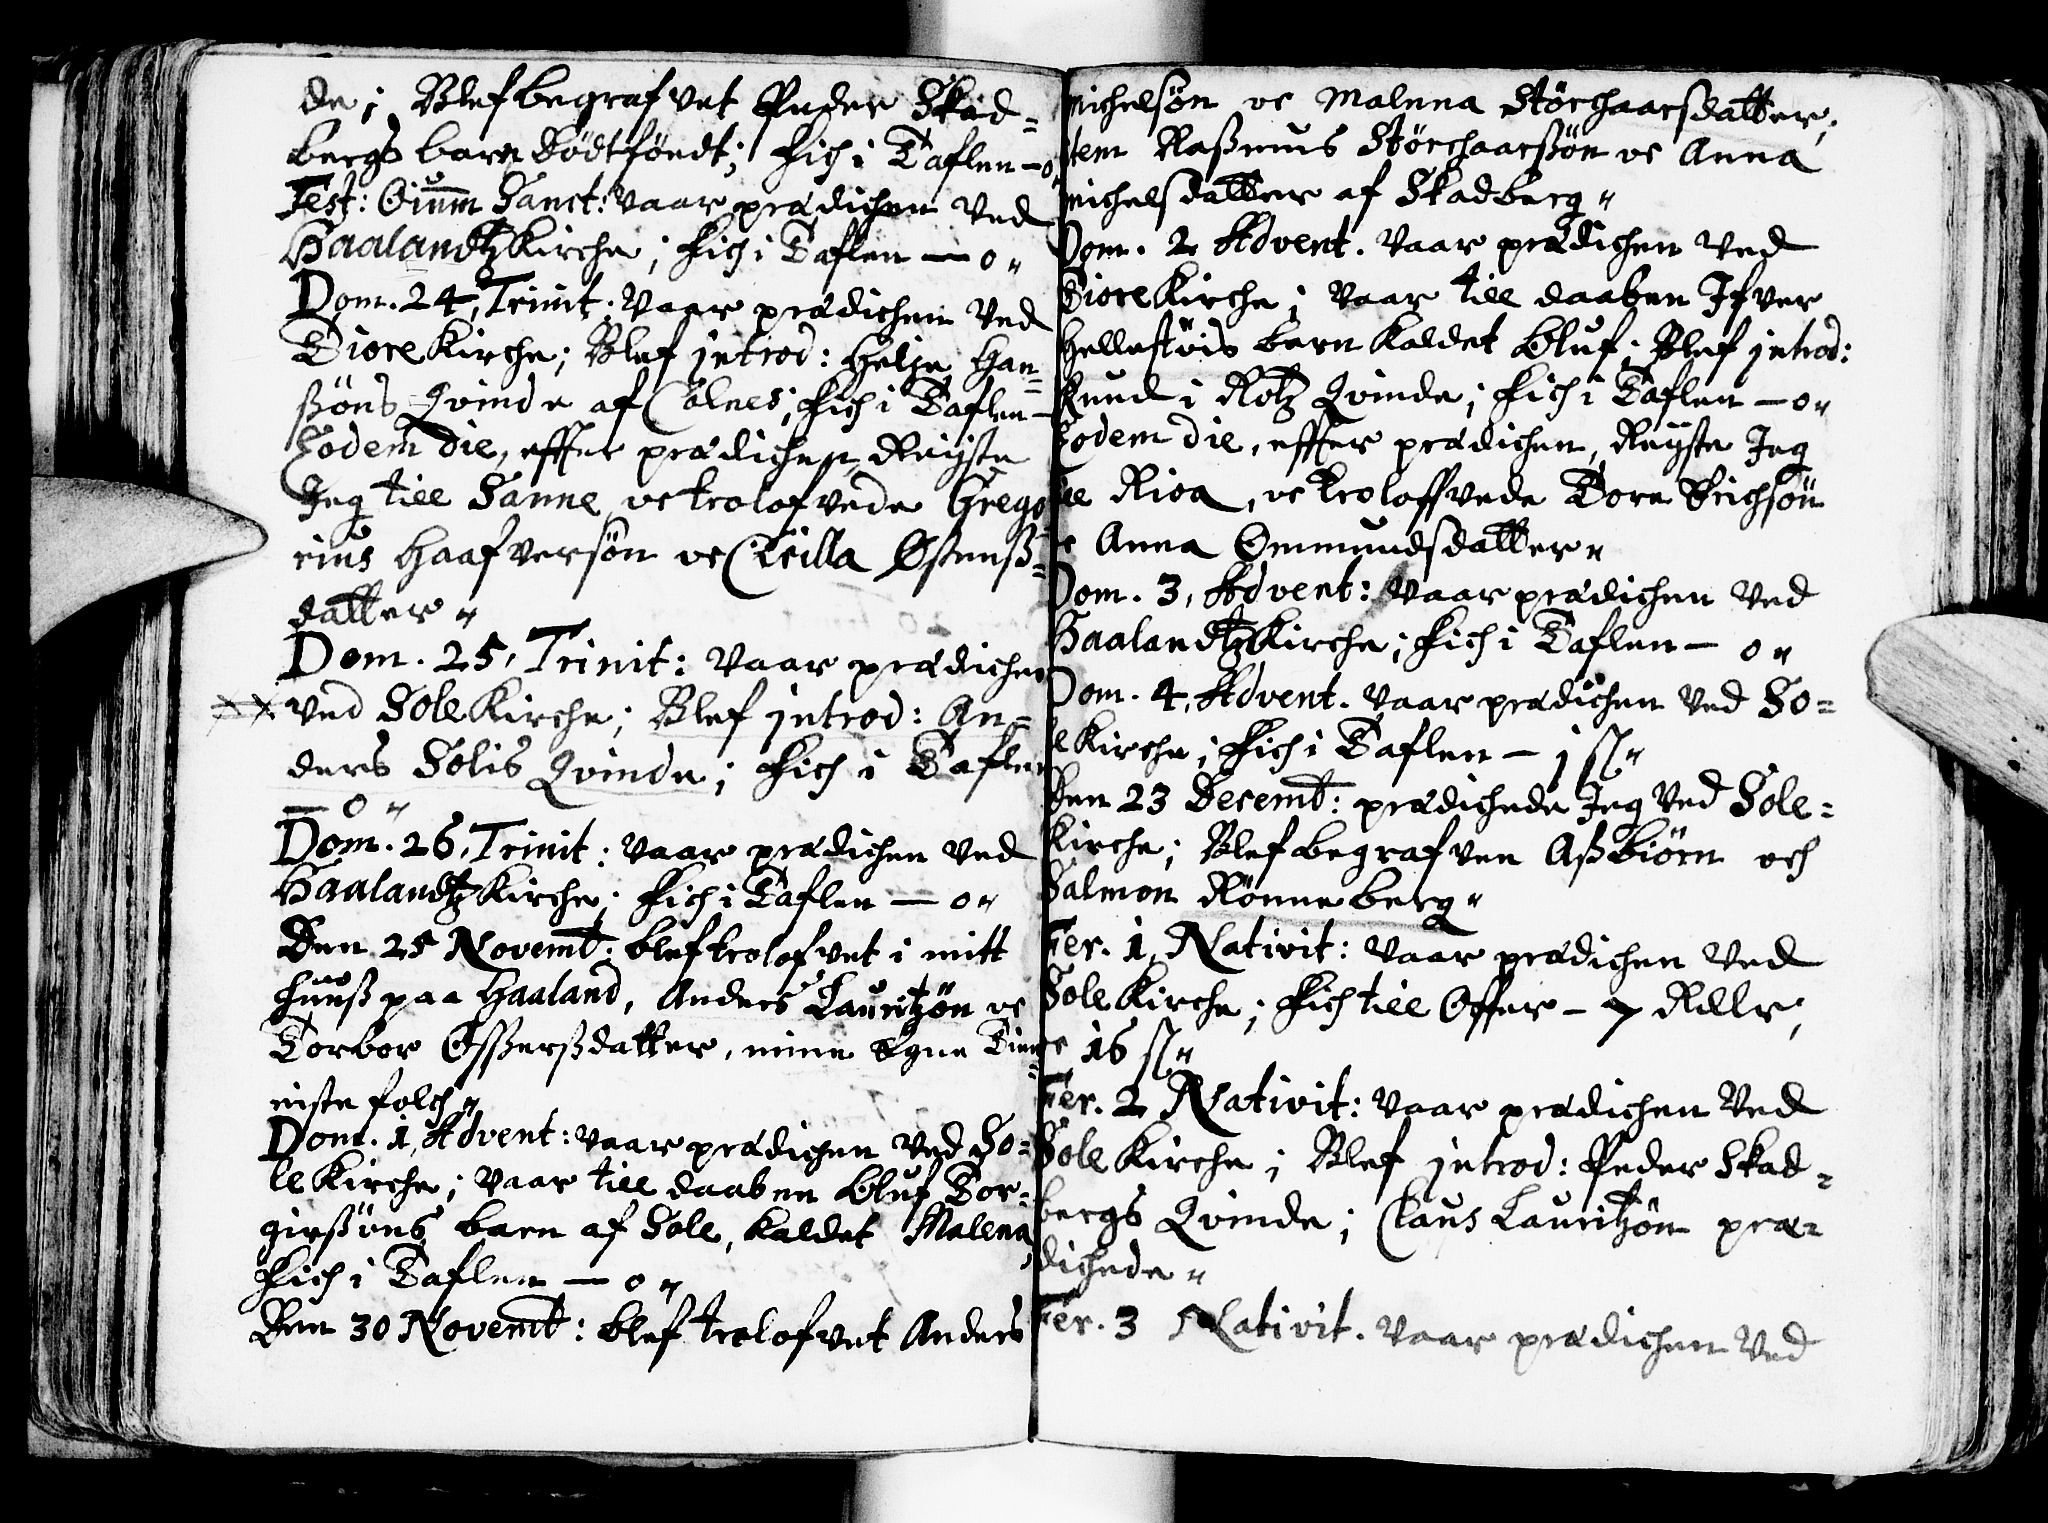 de; Blef begrafvet Peder Skad=
bergs barn Dødtføndt; Fich i Taflen — o "
Fest: Oium̄m Sanct: vaar prædichen ved
Haalandtz Kirche; Fich i Taflen — o "
Dom. 24, Trinit: vaar prædichen ved
Tiore Kirche; Blef introd: Helje Han=
ßøns Qvinde af Colnes; Fich i Taflen —
Eodem die, effter prædichen Reijste
Jeg till Sanne, oc trolofvede Grego
rius Haafversøn oc Cicilla Østenß=
datter "
Dom. 25, Trinit: vaar prædichen
ved Sole Kirche; Blef introd: An=
ders Solis Qvinde; Fich i Taflen
— o "
Dom. 26, Trinit: vaar prædichen ved
Haalandtz Kirche; Fich i Taflen — o "
Den 25 Novemb: blef trolofvet i mitt
huuß paa Haaland, Anders Lauritzøn oc
Torbor Osßerßdatter, mine Egne Tien
niste folch "
Dom. 1, Advent: vaar prædichen ved So=
le Kirche; vaar till daaben Oluf Tor=
girßøns barn af Sole, kaldet Malena,
Fich i Taflen — o "
Den 30 Novemb: blef trolofvet Anders
michelsøn oc Malena Størchaarsdatter;
tem Raßmus Størchaarßøn oc Anna
michelsdatter af Skadberg "
Dom. 2 Advent. vaar prædichen ved
Tiore Kirche; vaar till daaben Ifver
Hellestøis barn kaldet Oluf; Blef introd:
Knud i Rotz Qvinde; Fich i Taflen — o "
Eodem die, effter prædichen, Reijste Jeg
till Risa, oc troloffvede Tore Erichsøn
oc Anna Ommundsdatter "
Dom. 3, Advent: vaar prædichen ved
Haalandtz Kirche; Fich i Taflen — o "
Dom. 4, Advent. vaar prædichen ved So=
le Kirche; Fich i Taflen — j sl "
Den 23 Decemb: prædichede Jeg ved Sole=
Kirche; Blef begrafven Aßbiørn och
Salmon Rønneberg "
Fer. 1, Nativit: vaar prædichen ved
Sole Kirche; Fich till Offer — 7 Rdlr,
oc 16 sl "
Fer. 2 Nativit: vaar prædichen ved
Sole Kirche; Blef introd: Peder Skad=
bergs Qvinde; Claus Lauritzøn præ=
dichede "
Fer. 3 Nativit. vaar prædichen ved